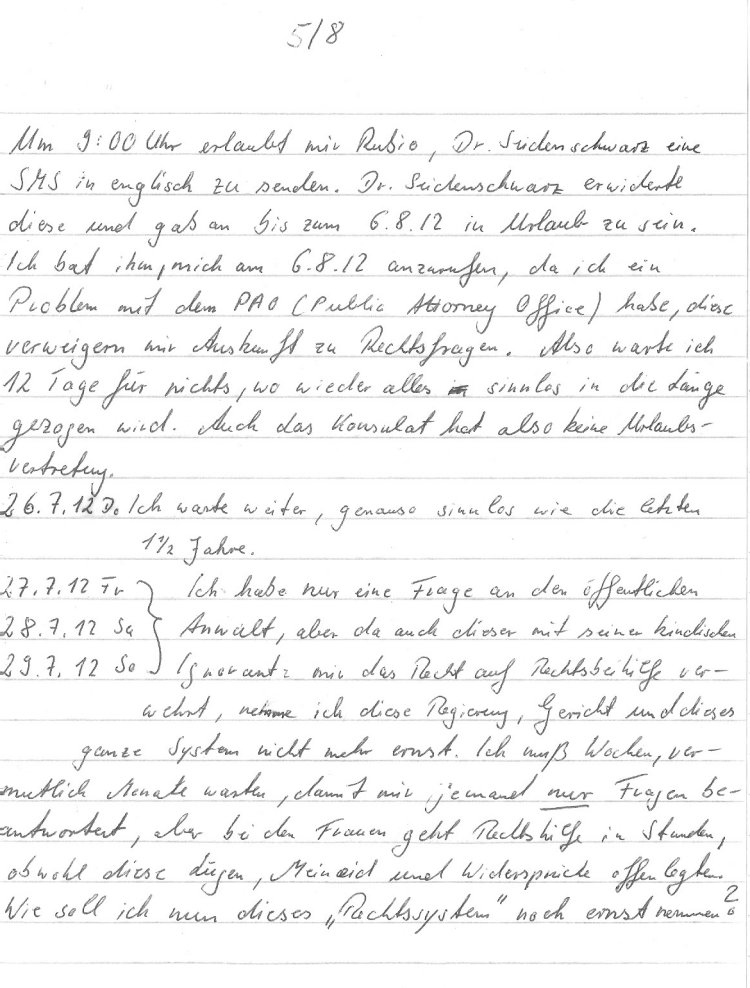 5/8
Um 9:00 Uhr erlaubt mir Rubio, Dr. Seidenschwarz eine
SMS in englisch zu senden. Dr. Seidenschwarz erwiderte
diese und gab an bis zum 6.8.12 in Urlaub zu sein.
Ich bat ihm, mich am 6.8.12 anzurufen, da ich ein
Problem mit dem PAO (Public Attorney Office) habe, diese
verweigern mir Auskunft zu Rechtsfragen. Also warte ich
12 Tage für nichts, wo wieder alles sinnlos in die Länge
gezogen wird. Auch das Konsulat hat also keine Urlaubs-
vertretung.
26.7.12 Do Ich warte weiter, genauso sinnlos wie die letzten
1 1/2 Jahre.
27.7.12 Fr Ich habe nur eine Frage an den öffentlichen
28.7.12 Sa Anwalt, aber da auch dieser mit seiner kindischen
29.7.12 So Ignorantz mir das Recht auf Rechtsbeihilfe ver-
wehrt, nehme ich diese Regierung, Gericht und dieses
ganze System nicht mehr ernst. Ich muß Wochen, ver-
mutlich Monate warten, damit mir jemand nur Fragen be-
antwortet, aber bei den Frauen geht Rechtshilfe in Stunden,
obwohl diese Lügen, Meineid und Widersprüche offen legten.
Wie soll ich nun dieses „Rechtssystem" noch ernst nemmen?